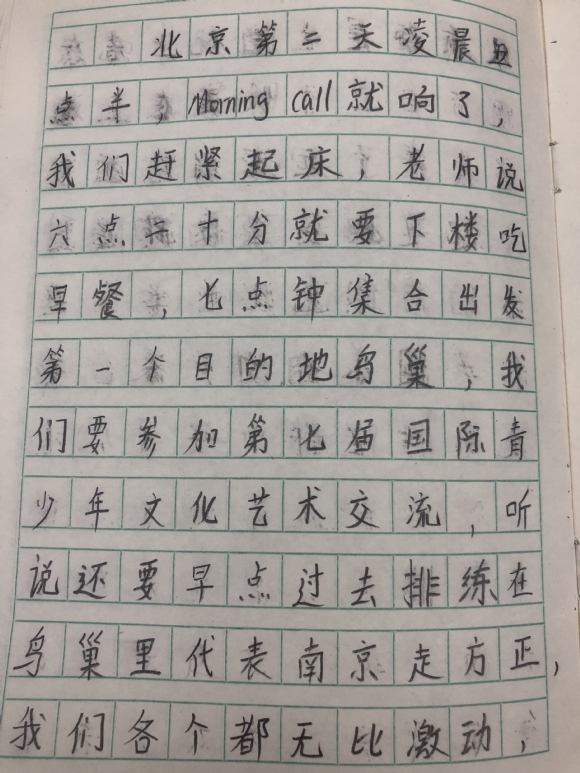 北京第二天凌晨五
点半，Morning call就响了，
我们赶紧起床，老师说
六点二十分就要下楼吃
早餐，七点钟集合出发
第一个目的地鸟巢，我
们要参加第七届国际青
少年文化艺术交流，听
说还要早点过去排练在
鸟巢里代表南京走方正，
我们各个都无比激动，